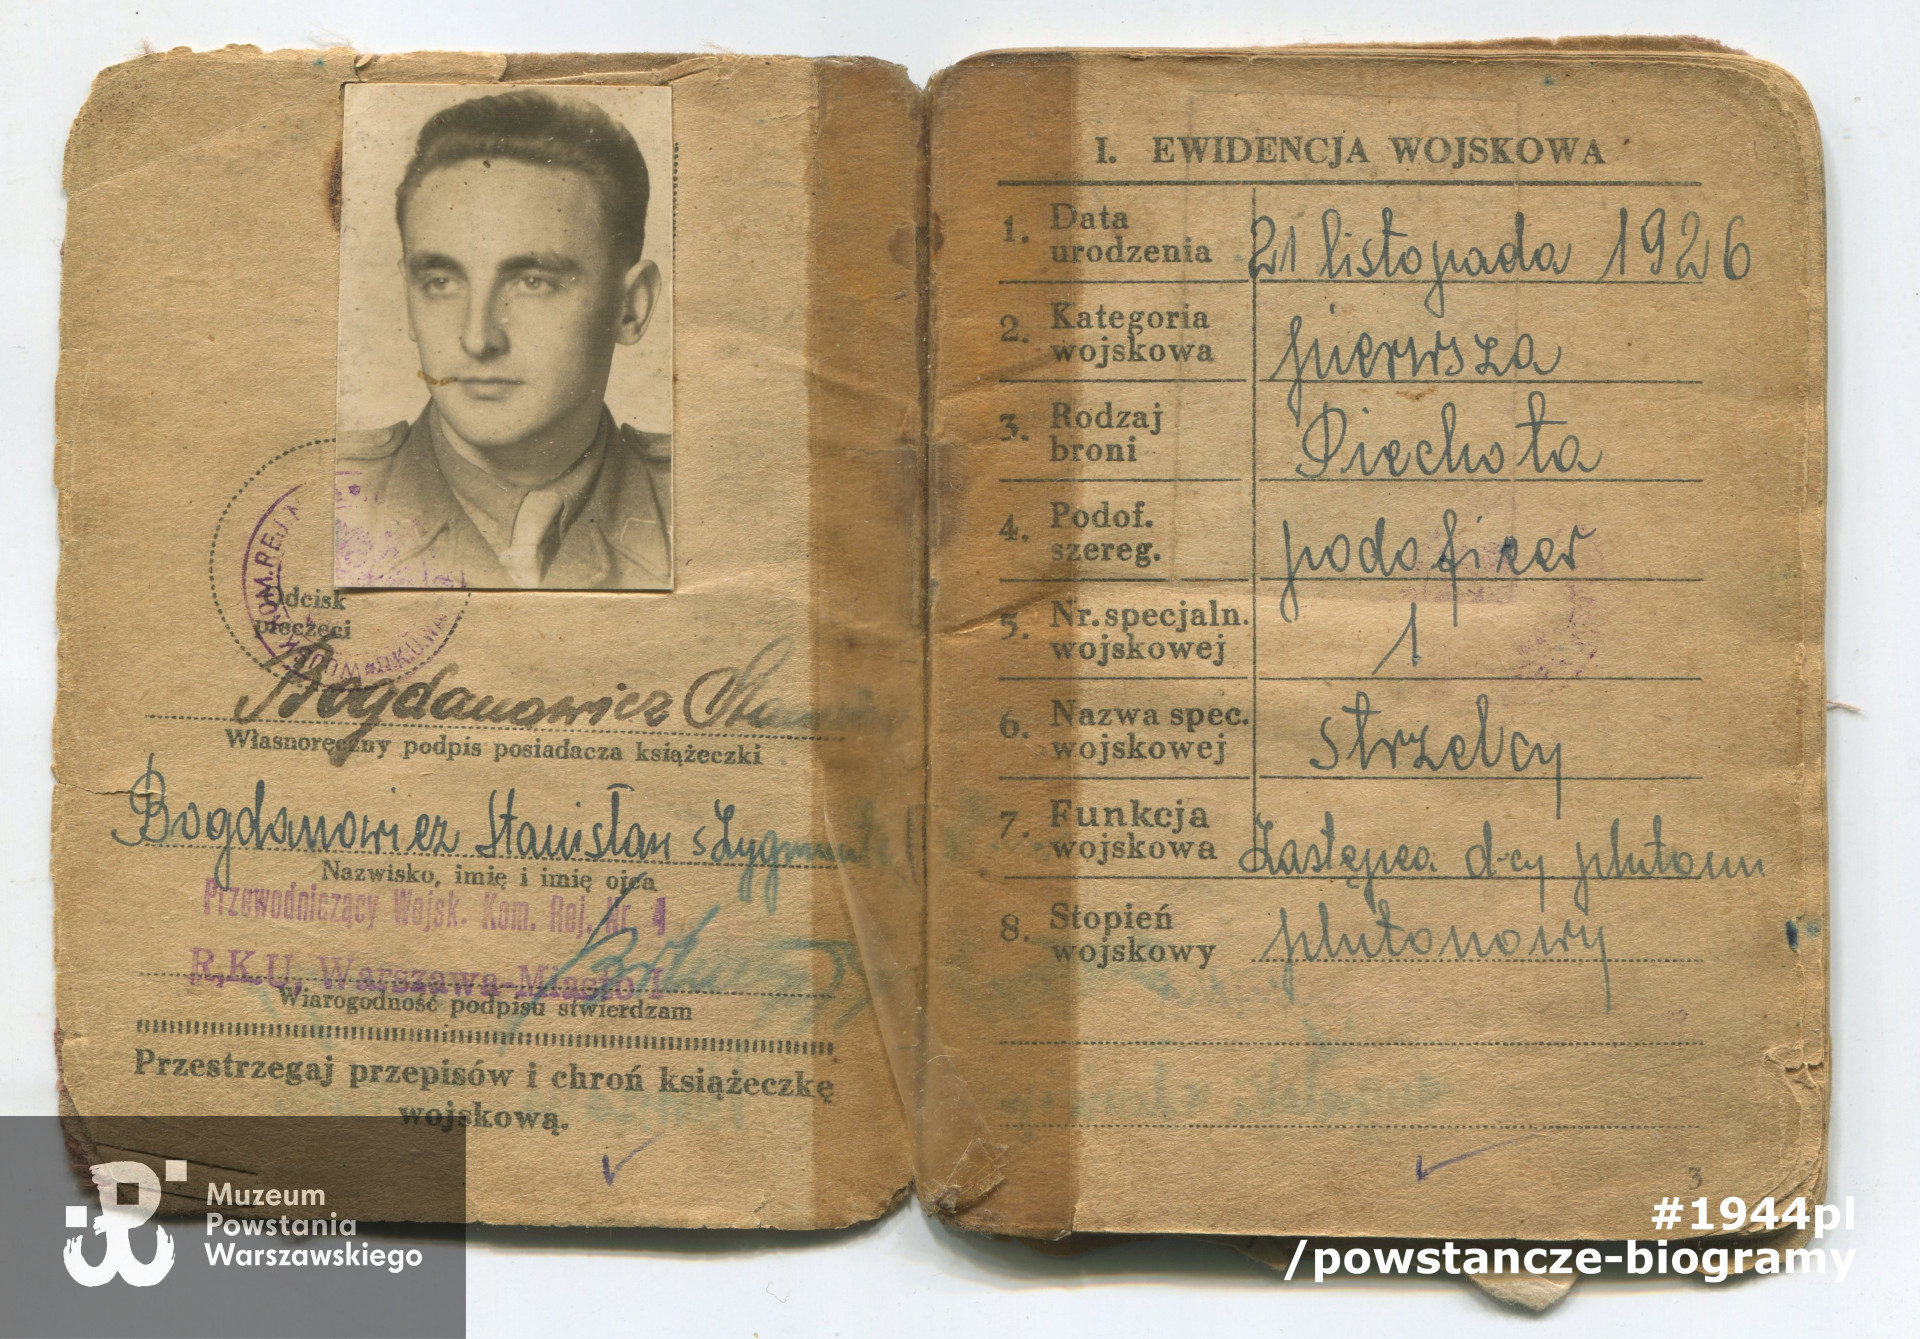 KOM.REJ
R.K.U.
Odcisk
pieczęci
Bogdanowicz
Własnoręczny podpis posiadacza książeczki
Bogdanowicz Stanisław s Zygmunta
Nazwisko, imię i imię ojca
Przewodniczący Wojsk. Kom. Rej. Nr. 4
R.K.U. Warszawa-Miasto I
Wiarogodność podpisu stwierdzam
Przestrzegaj przepisów i chroń książeczkę
wojskową.
I. EWIDENCJA WOJSKOWA
1. Data
urodzenia 21 listopada 1926
2. Kategoria
wojskowa pierwsza
3. Rodzaj
broni Piechota
4. Podof.
szereg. podoficer
5. Nr. specjaln.
wojskowej 1
6. Nazwa spec.
wojskowej strzelcy
7. Funkcja
wojskowa Zastępca d-cy plutonu
8. Stopień
wojskowy plutonowy
3
Muzeum
Powstania
Warszawskiego
#1944pl
/powstancze-biogramy